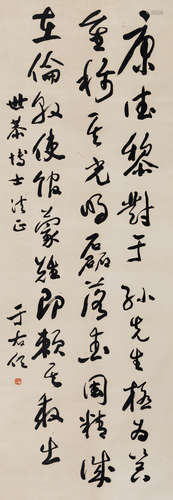 康德黎對于孫先生極為器
重稱其光明磊落愛國精誠
在倫敦使館蒙難即賴其救出
世博士法正
于右任